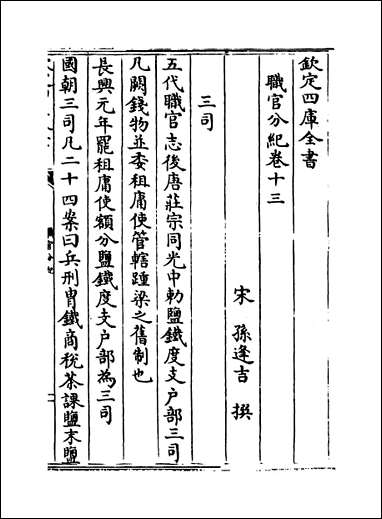 欽定四庫全書
職官分紀卷十三
宋 孫逢吉 撰
三司
五代職官志後唐莊宗同光中勅鹽鐵度支户部三司
凡關錢物並委租庸使管轄踵梁之舊制也
長興元年罷租庸使額分鹽鐵度支户部為三司
國朝三司凡二十四案曰兵刑胄鐵商税茶課鹽末鹽